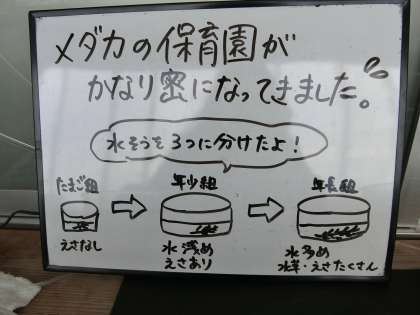 メダカの保育園が
かなり密になってきました。
水そうを3つに分けたよ！
たまご組
年少組
年長組
えさなし
水浅め
えさあり
水多め
水草・えさたくさん